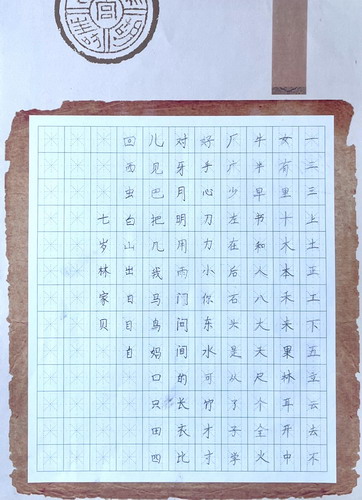 一二三上土正工下五立云去不
女有里十木本禾未果林耳开中
牛半早书和人八大天尺个全火
厂广少左在后石头是从了子学
好手心刀力小你东水可竹才寸
对牙月明用雨门问间的长衣比
儿见巴把几我马鸟妈口只田四
回西虫白山出日目自
七岁林家贝